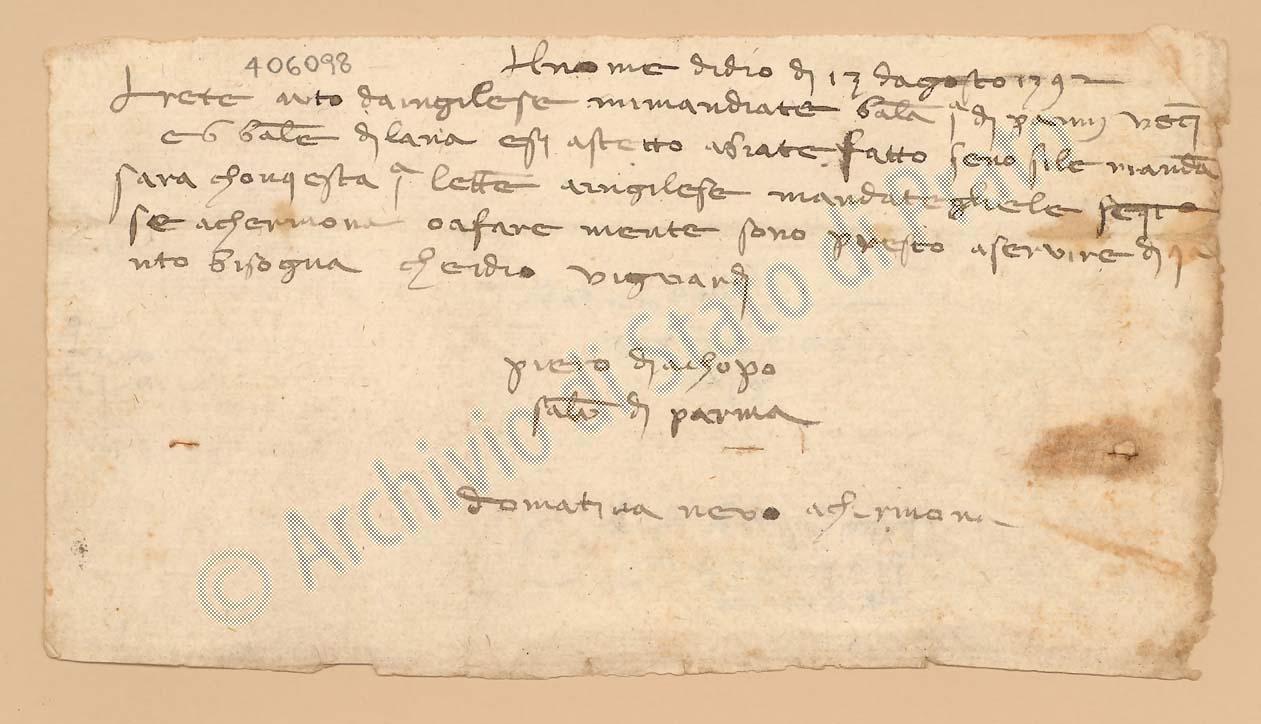 406098
Al nome didio di 17 dagosto 1392
Arete auto daingilese mimandiate balla j^a di panni vecchi
e 6 balle di lana e si aspetto abiate fatto se no si le manda
sara chonqesta j^a lettera aingilese mandategliele
se achermona o afare mente sono presto a servire di qa
nto bisogna cheidio vi guardi
piero diachopo
salute di parma
domatina nevo achermona
© Archivio di Stato di Prato